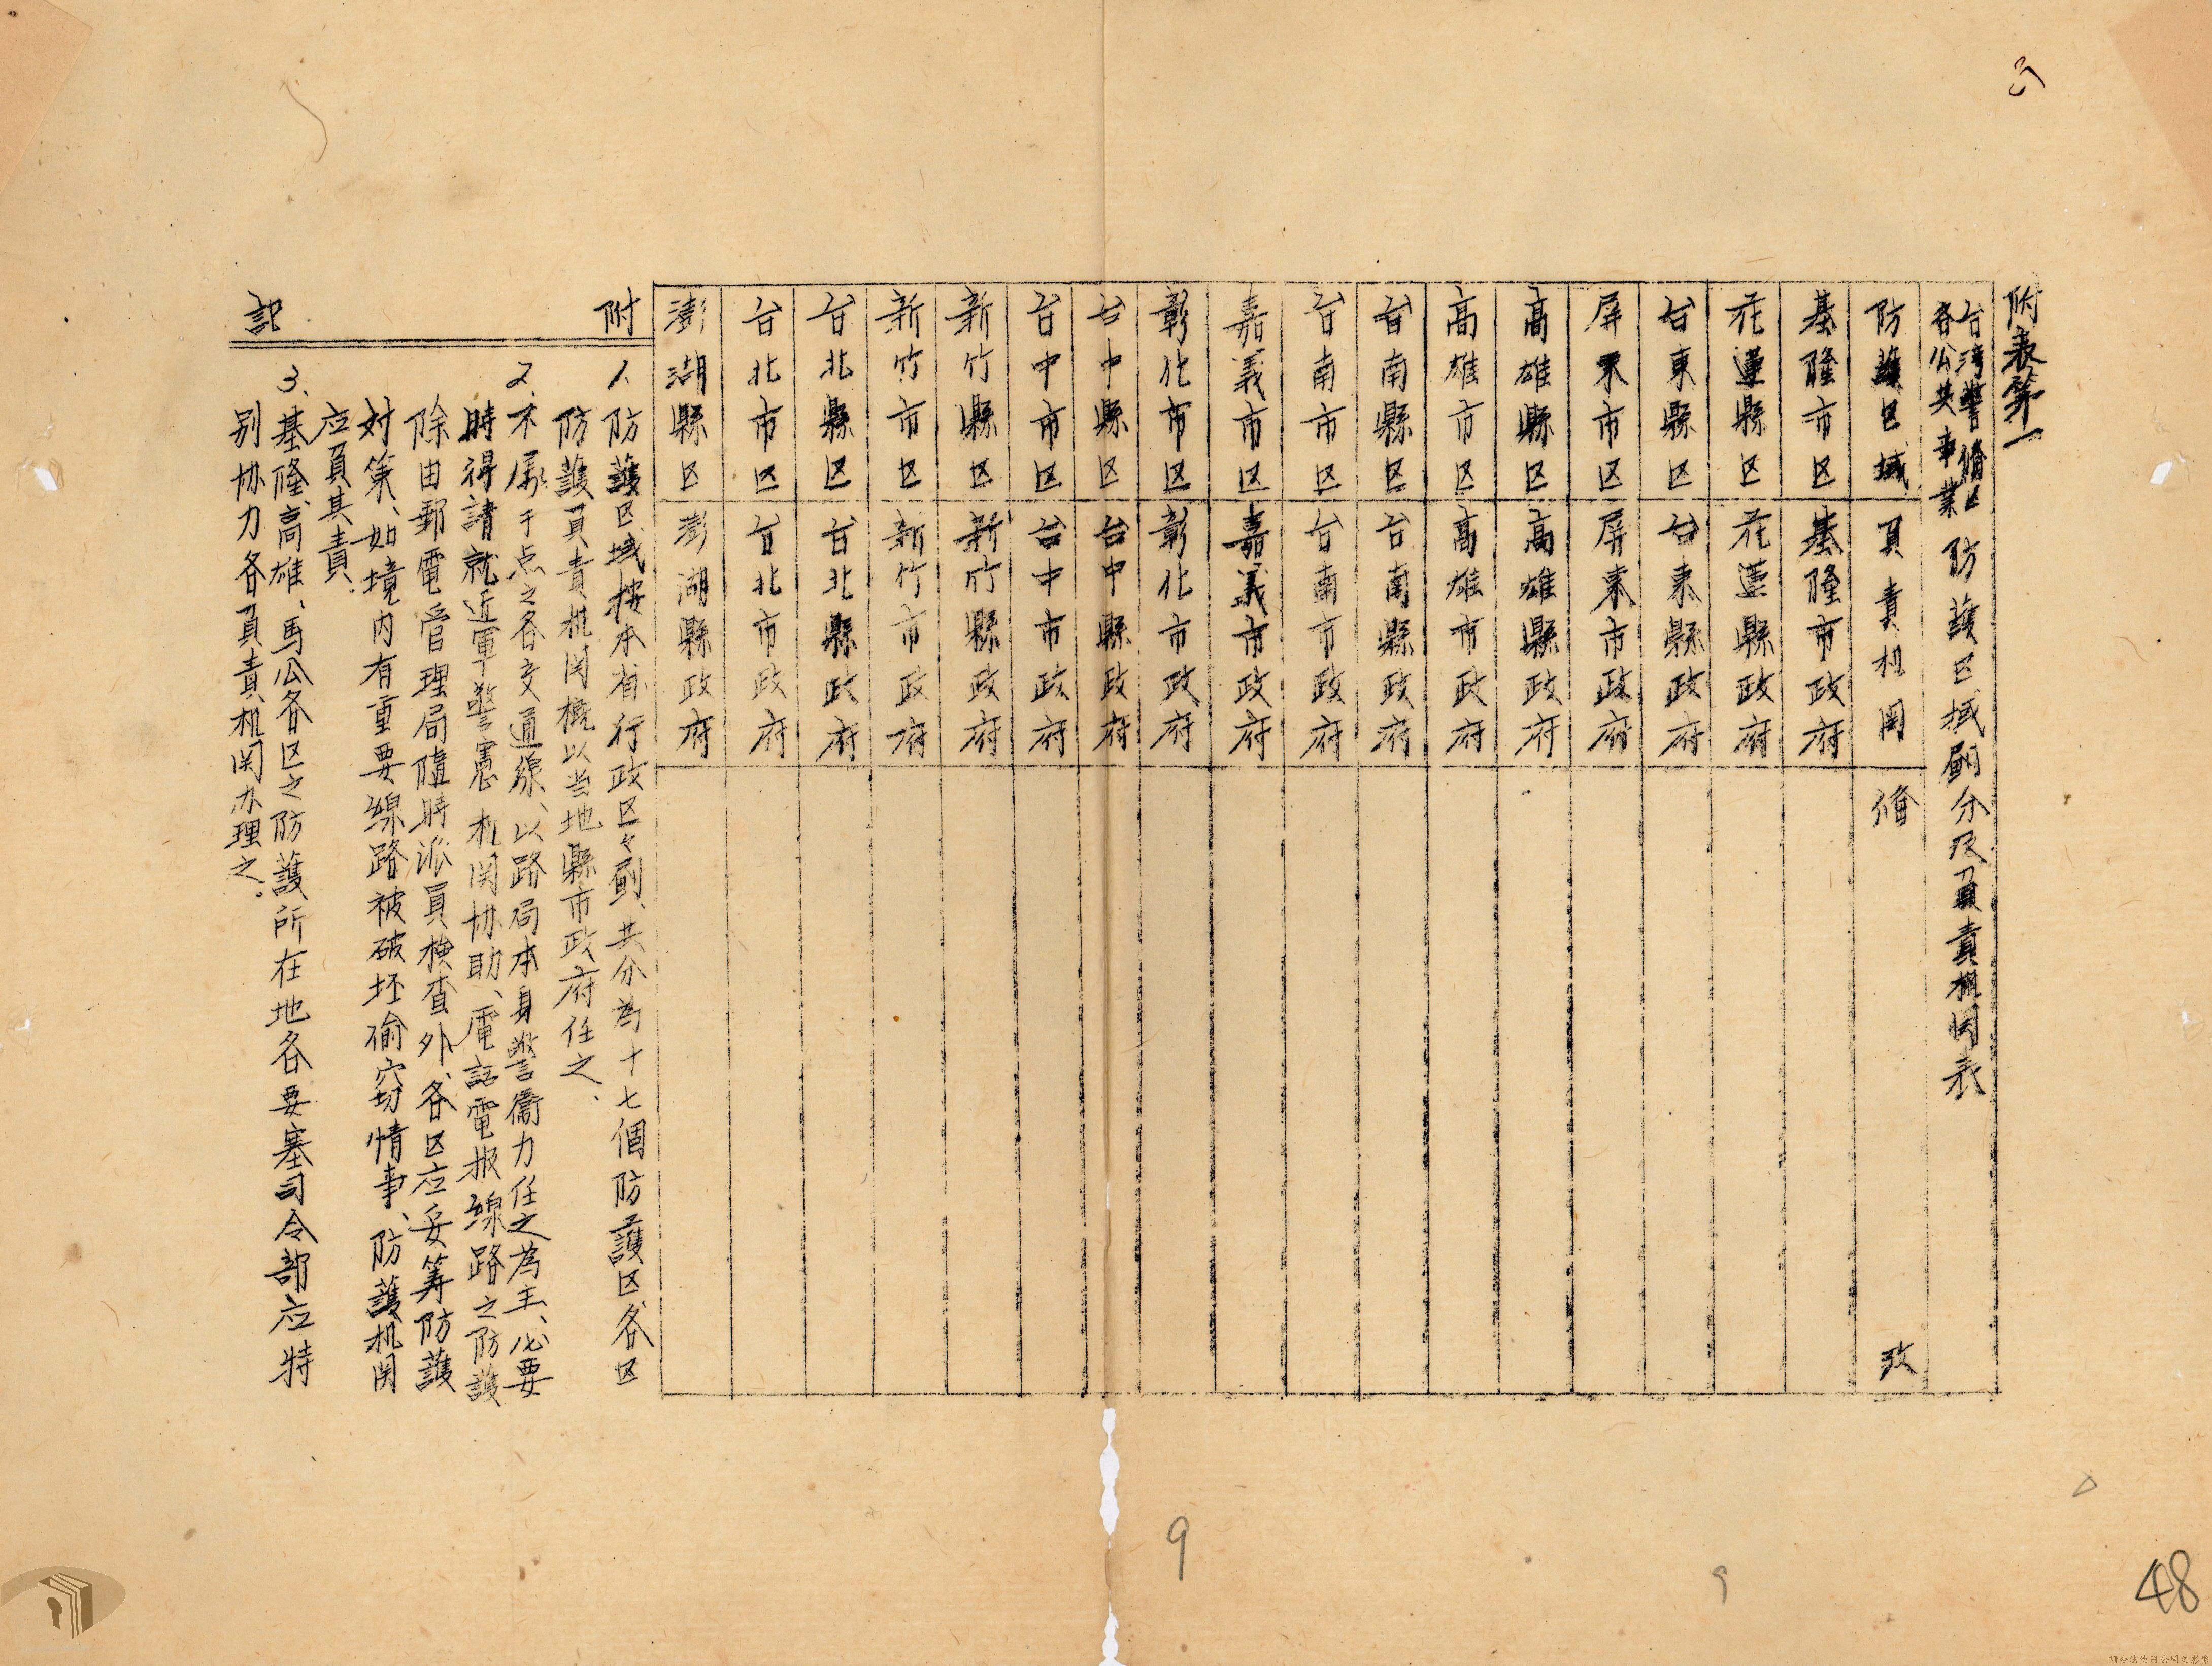 附表第一
台湾警備区
各公共事業
防護区域劃分及負責机関表
防護区域 負責机関 備 攷
基隆市区 基隆市政府
花蓮縣区 花蓮縣政府
台東縣区 台東縣政府
屏東市区 屏東市政府
高雄縣区 高雄縣政府
高雄市区 高雄市政府
台南縣区 台南縣政府
台南市区 台南市政府
嘉義市区 嘉義市政府
彰化市区 彰化市政府
台中縣区 台中縣政府
台中市区 台中市政府
新竹縣区 新竹縣政府
新竹市区 新竹市政府
台北縣区 台北縣政府
台北市区 台北市政府
澎湖縣区 澎湖縣政府
附 記
1、防護区域按本省行政区々劃、共分為十七個防護区、各区
防護負責机関概以当地縣市政府任之、
2、不屬于点之各交通線、以路局本身警衞力任之為主、必要
時得請就近軍警憲机関協助、電話電报線路之防護
除由郵電管理局隨時派員検查外、各区应妥筹防護
対策、如境内有重要線路被破坯偷窃情事、防護机関
应負其責.
3、基隆、高雄、馬公各区之防護所在地各要塞司令部应特
别协力各負責机関办理之。
9
9
48
請合法使用公開之影像